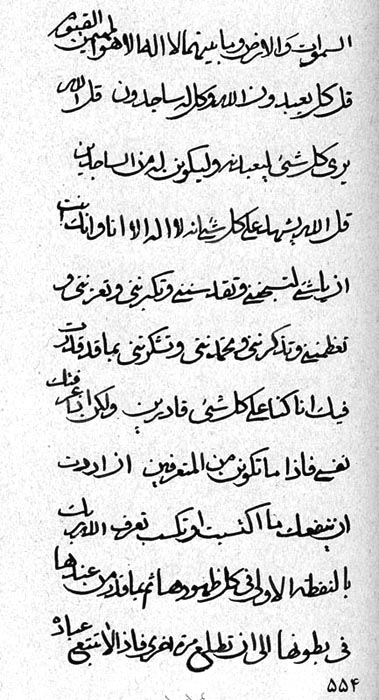 السموات والارض وما بينهما لا اله الا هو المهيمن القيوم
قل كل يعبدون الله وكل له ساجدون قل الله
يرى كل شئ ليعبدنه وليكونن له من الساجدين
قل الله يشهد على كل شئ انه لا اله الا انا وانك انت
ان يا شئ لتسبحني وتقدسنني وتكبرنني وتعززنني و
تعظمنني وتذكرنني وتحمدنني وتشكرنني بما قد قدرت
فيك انا كنا على كل شئ قادرين ولكن انا عرفناك
نفسي فاذا ما تكونن من المتعرفين ان اردت
ان ينفعك ما اكتسبت او تكسب تعرف الله ربك
بالنقطة الاولى في كل ظهورها ثم بما قدر من عندها
في بطونها الى ان تطلع مرة اخرى فاذا لا تنفع عباد
٥٥۴